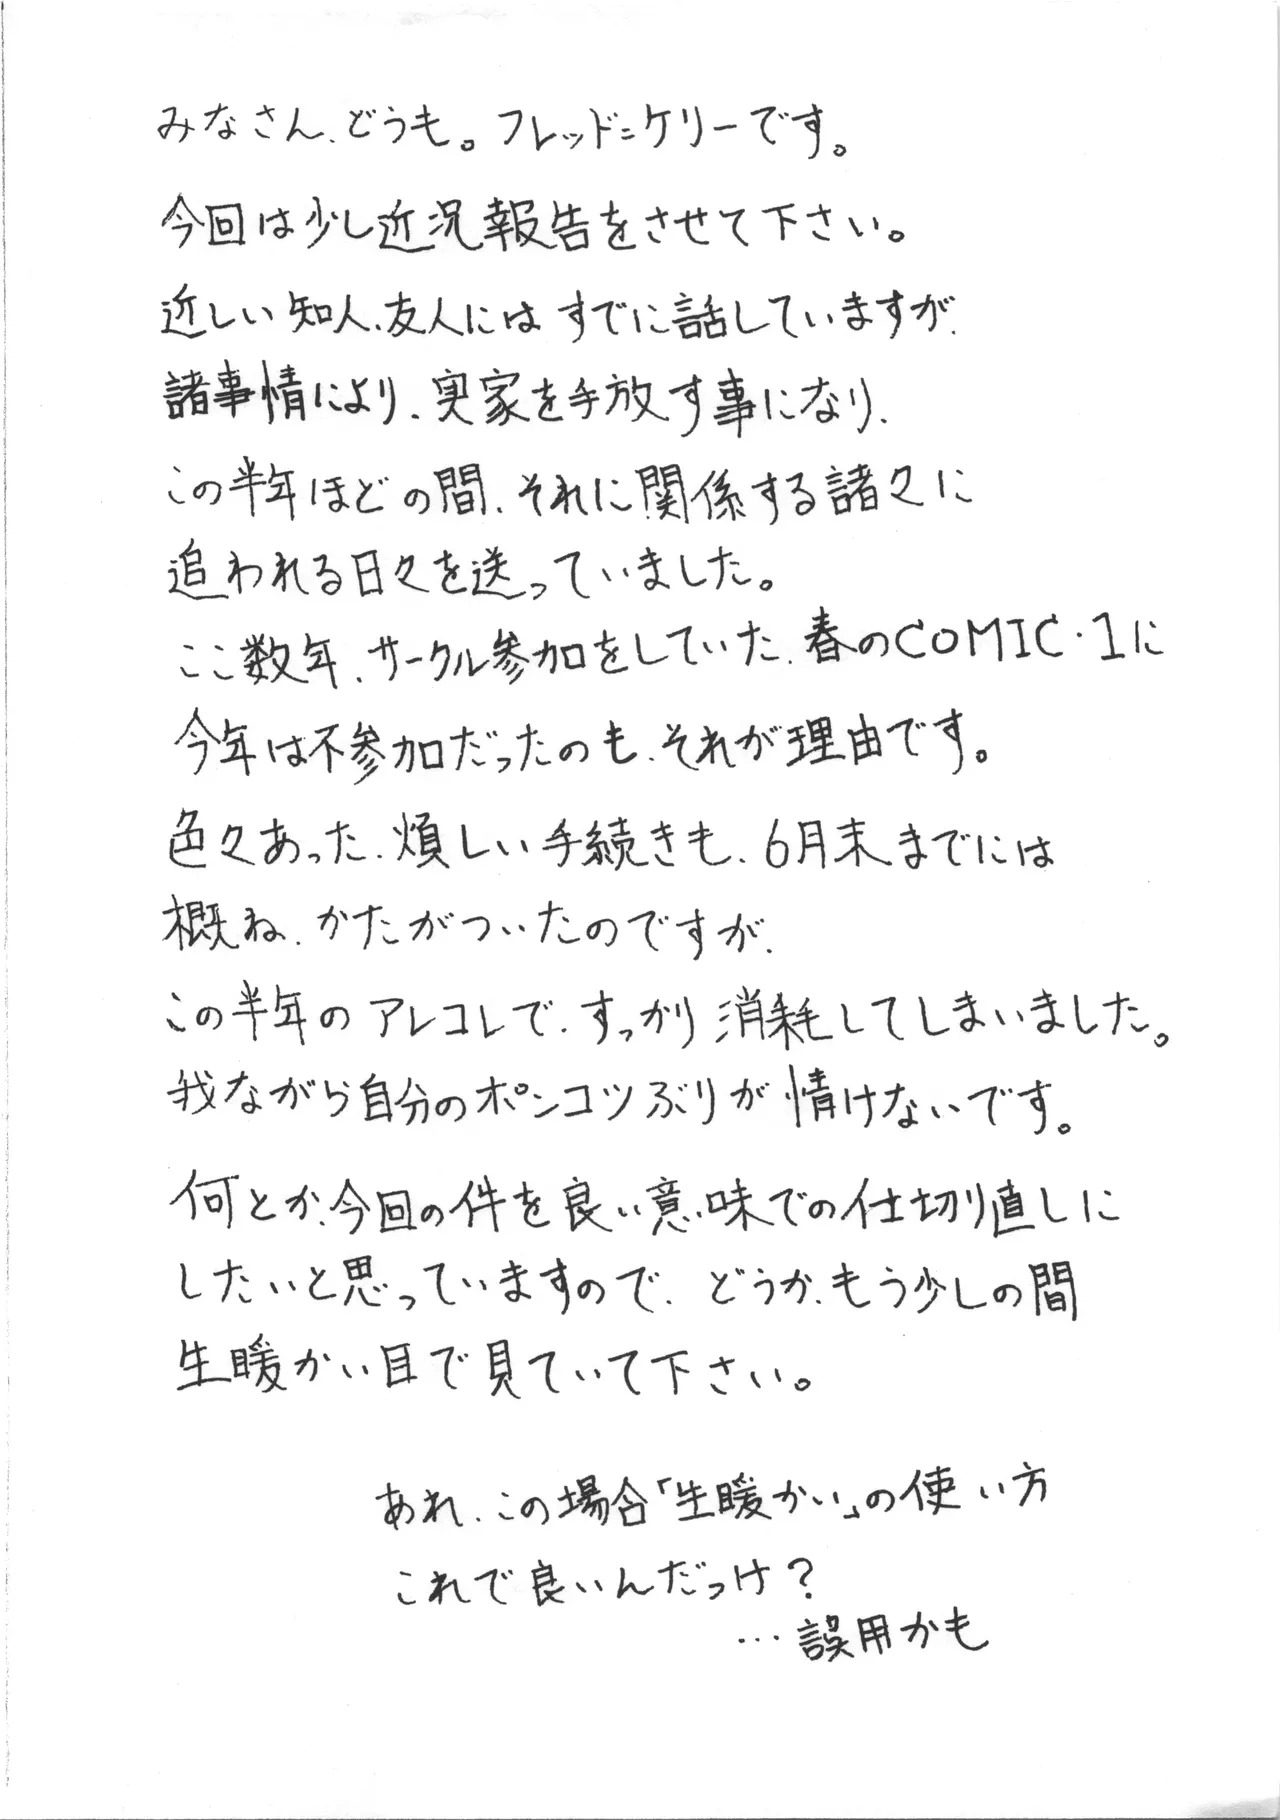 みなさん、どうも。フレッド=ケリーです。
今回は少し近況報告をさせて下さい。
近しい知人、友人にはすでに話していますが、
諸事情により、実家を手放す事になり、
この半年ほどの間、それに関係する諸々に
追われる日々を送っていました。
ここ数年、サークル参加をしていた、春のCOMIC・1に
今年は不参加だったのも、それが理由です。
色々あった、煩しい手続きも、6月末までには
概ね、かたがついたのですが、
この半年のアレコレで、すっかり消耗してしまいました。
我ながら自分のポンコツぶりが情けないです。
何とか、今回の件を良い意味での仕切り直しに
したいと思っていますので、どうか、もう少しの間
生暖かい目で見ていて下さい。
あれ、この場合「生暖かい」の使い方
これで良いんだっけ?
…誤用かも